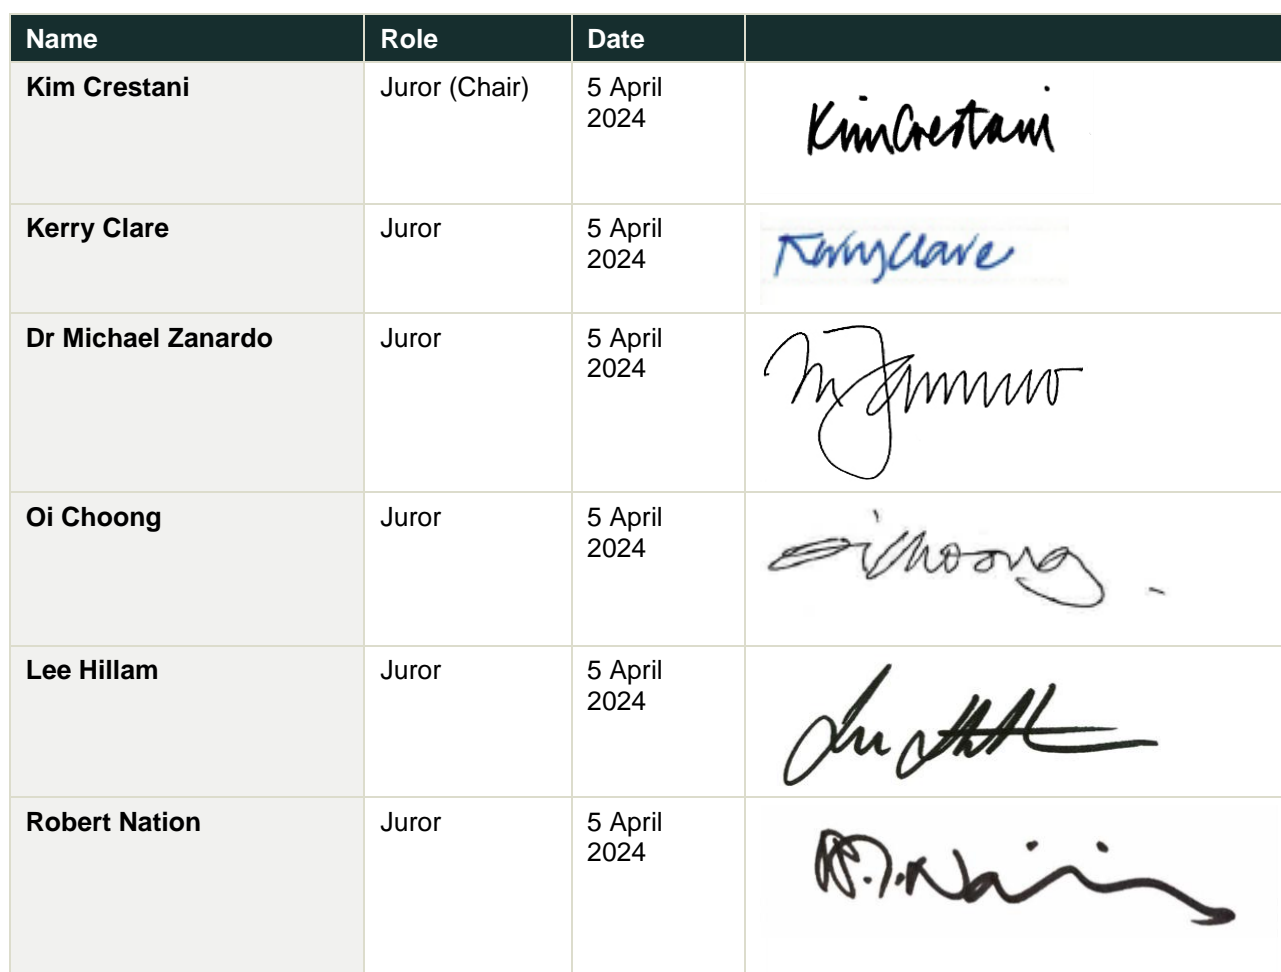 Name Role Date
Kim Crestani Juror (Chair) 5 April
2024
Kim Crestani
Kerry Clare Juror 5 April
2024
Kerry Clare
Dr Michael Zanardo Juror 5 April
2024
Oi Choong Juror 5 April
2024
Oi Choong
Lee Hillam Juror 5 April
2024
Robert Nation Juror 5 April
2024